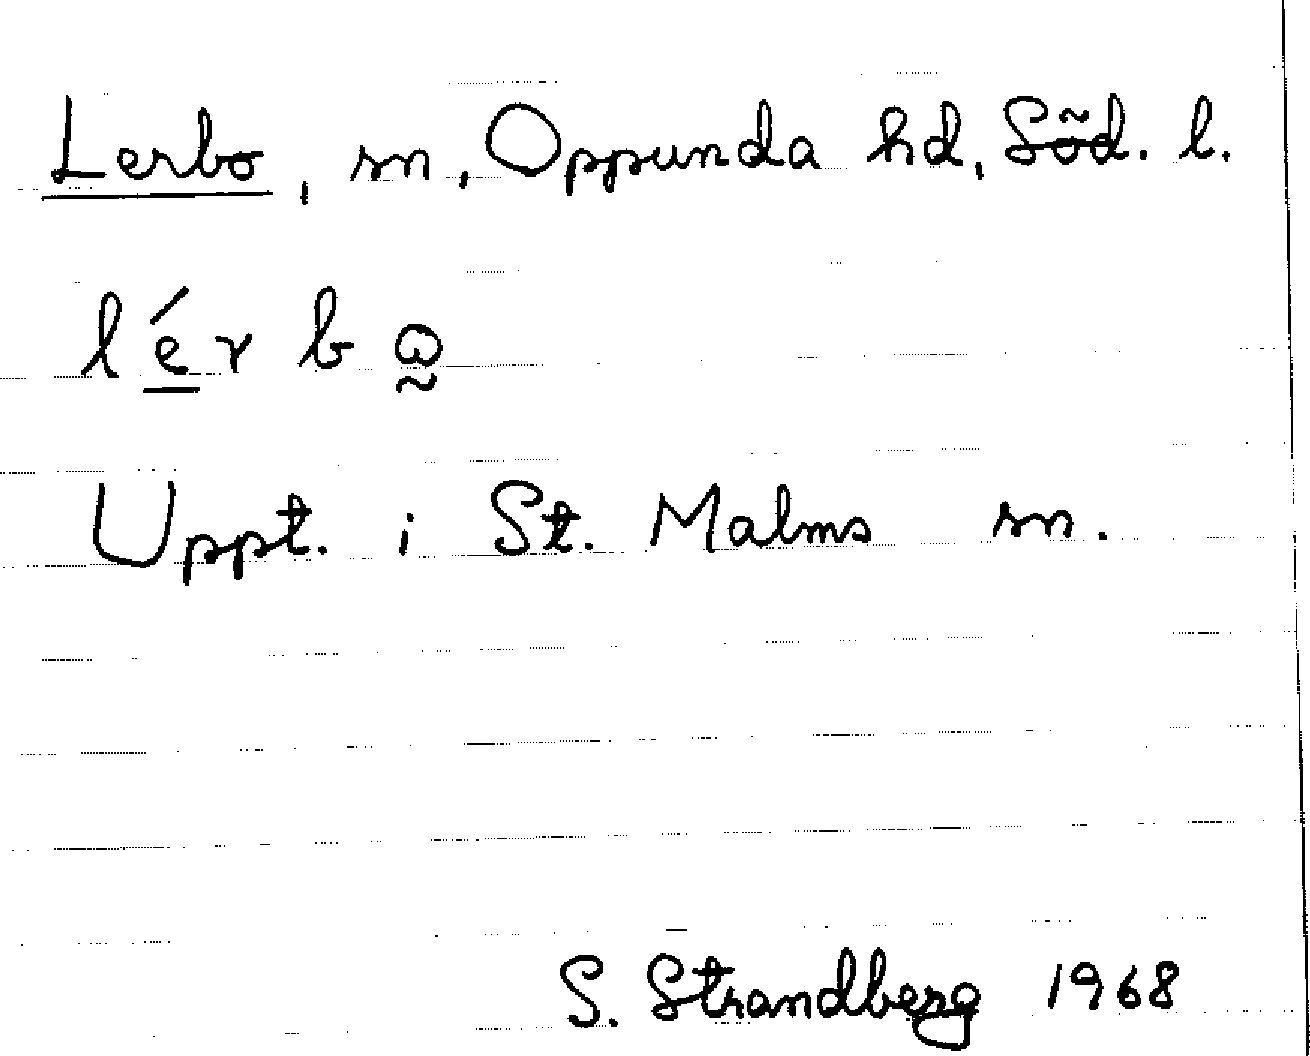 Lerbo, sn, Oppunda hd, Söd. l.
lé̲rbω̰
Uppt. i St. Malms sn.
S. Strandberg 1968